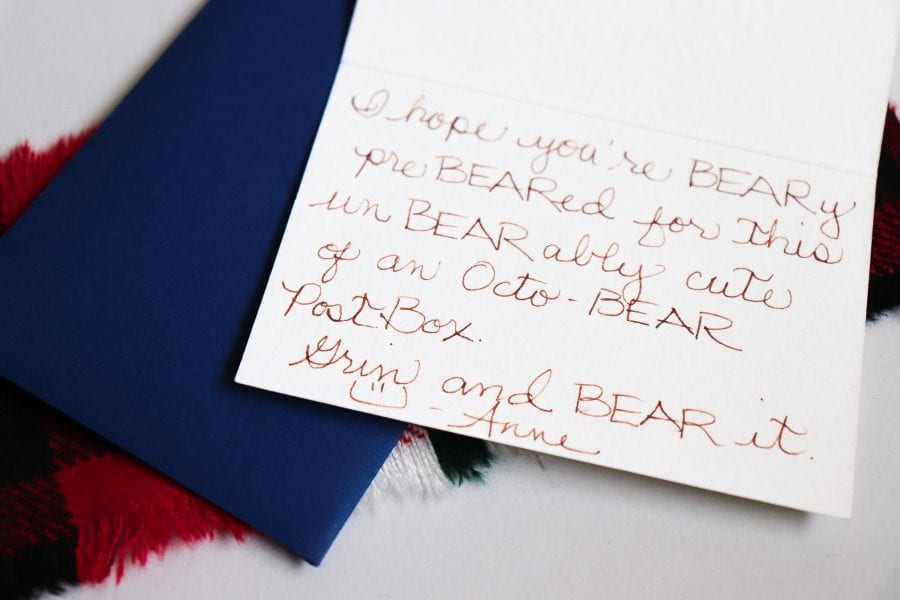 I hope you're BEARy
preBEARed for this
unBEARably cute
of an Octo-BEAR
Post Box.
Grin and BEAR it.
- Anne